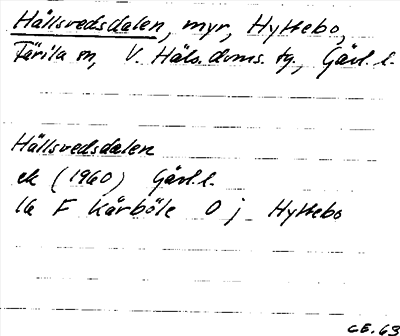 Hällsvedsdalen, myr, Hyttebo,
Färila sn, V. Häls. doms. tg., Gävl. l.
Hällsvedsdalen
ek (1960) Gävl. l.
16 F Kårböle O j Hyttebo
CE. 63